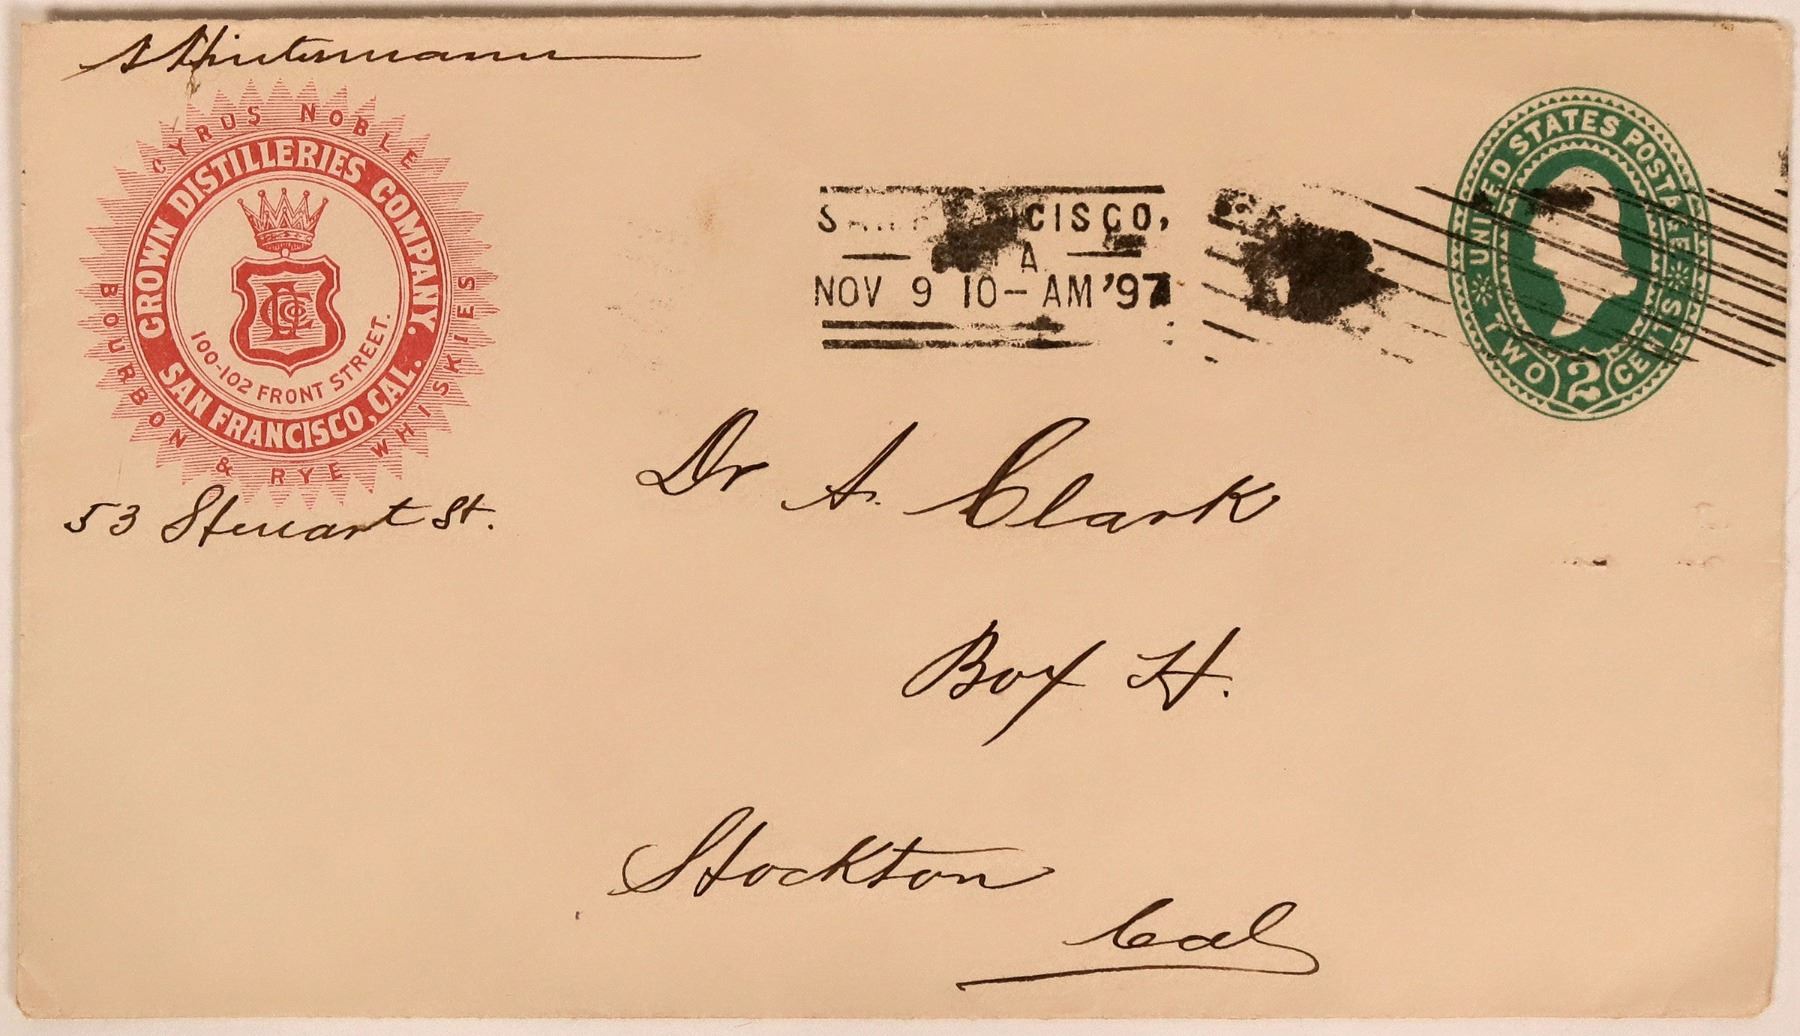 CYRUS NOBLE
CROWN DISTILLERIES COMPANY.
100-102 FRONT STREET.
SAN FRANCISCO, CAL.
BOURBON & RYE WHISKIES
53 Steuart St.
CISCO,
A
NOV 9 10-AM '97
UNITED STATES POSTAGE
TWO 2 CENTS
Dr A. Clark
Box H.
Stockton
Cal